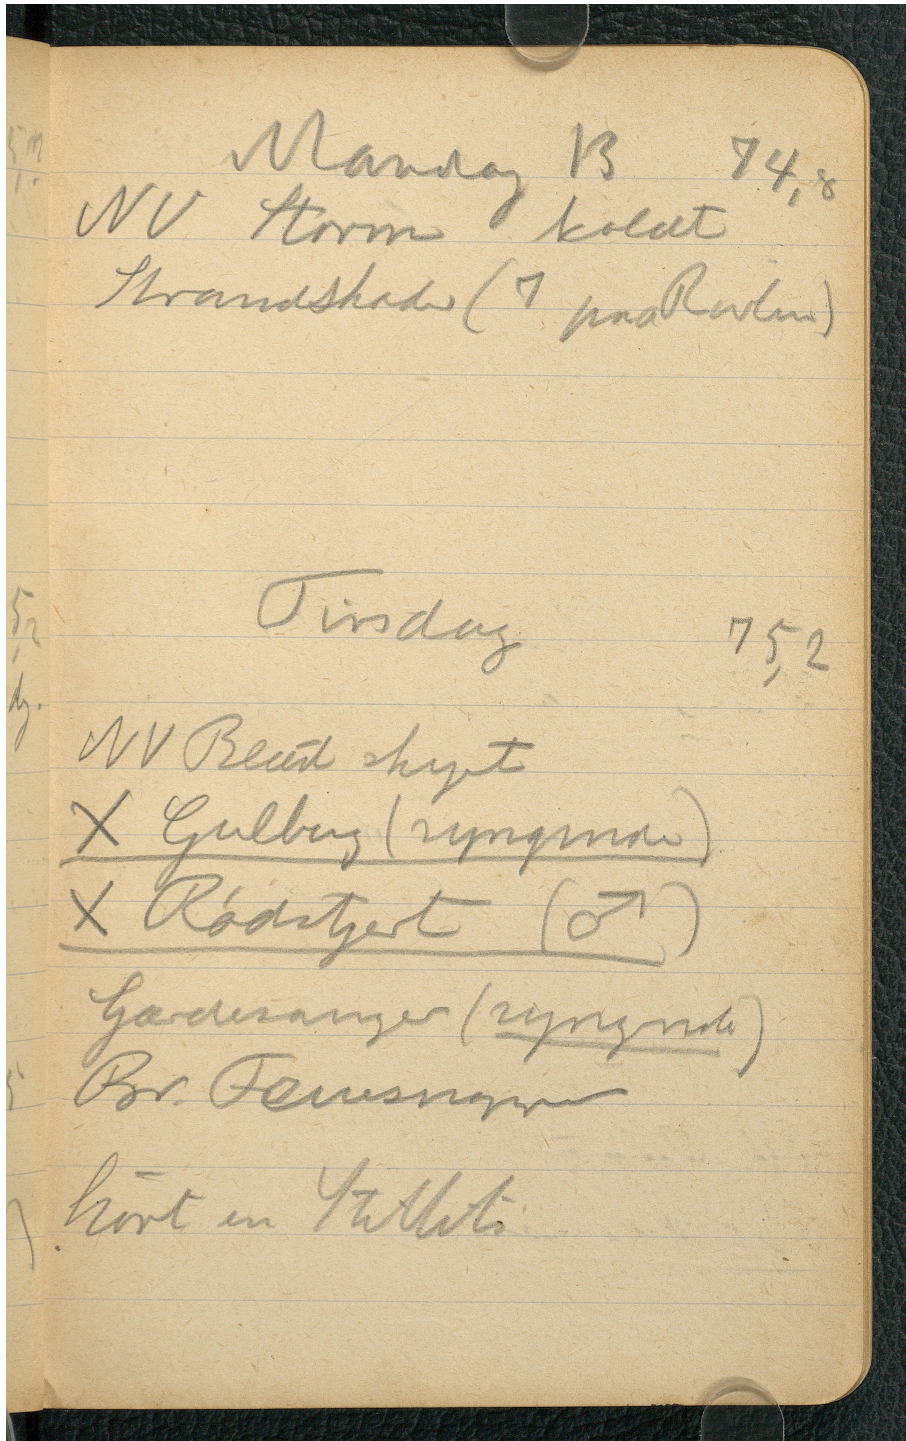 Mandag B 74,8
NV Storm koldt
Strandskade (7 paa Revlen)
Tirsdag
75,2
NV Blæst skyet
X Gulbug (syngende)
X Rødstjert (♂)
Gærdesanger (syngende)
Br. Fluesnapper
hørt en Stillits